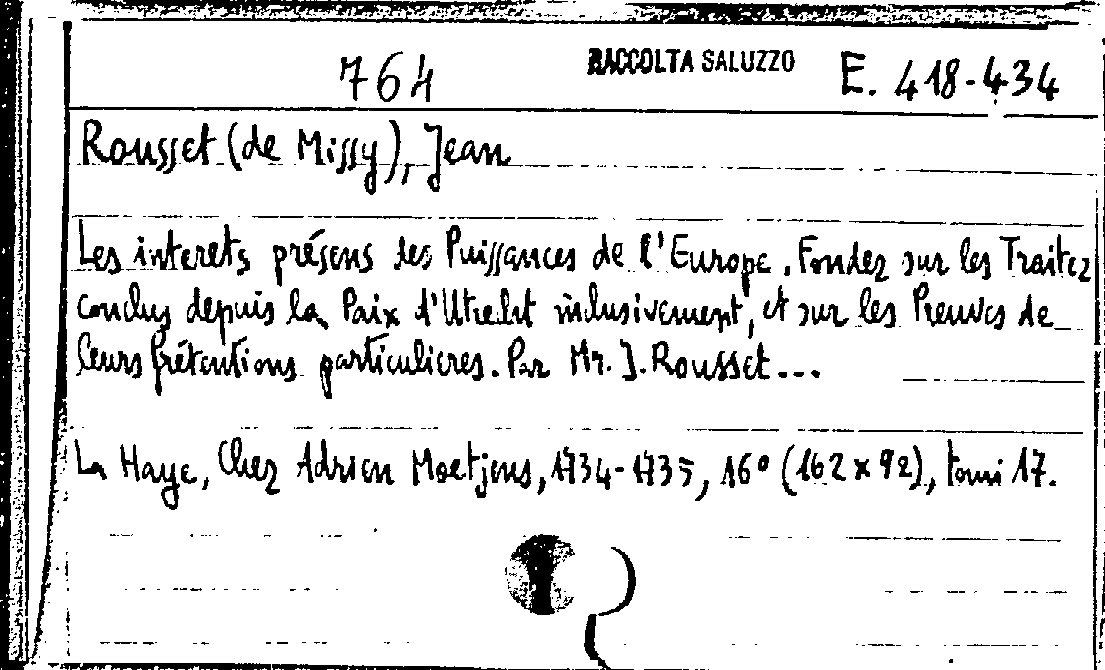 764 RACCOLTA SALUZZO E. 418-434
Rousset (de Missy), Jean
Les interets présens des Puissances de l'Europe. Fondez sur les Traitez
conclus depuis la Paix d'Utrecht inclusivement, et sur les Preuves de
leurs Prétentions particulieres. Par Mr. J. Rousset...
La Haye, Chez Adrien Moetjens, 1734-1735, 16° (162 x 92), tomi 17.